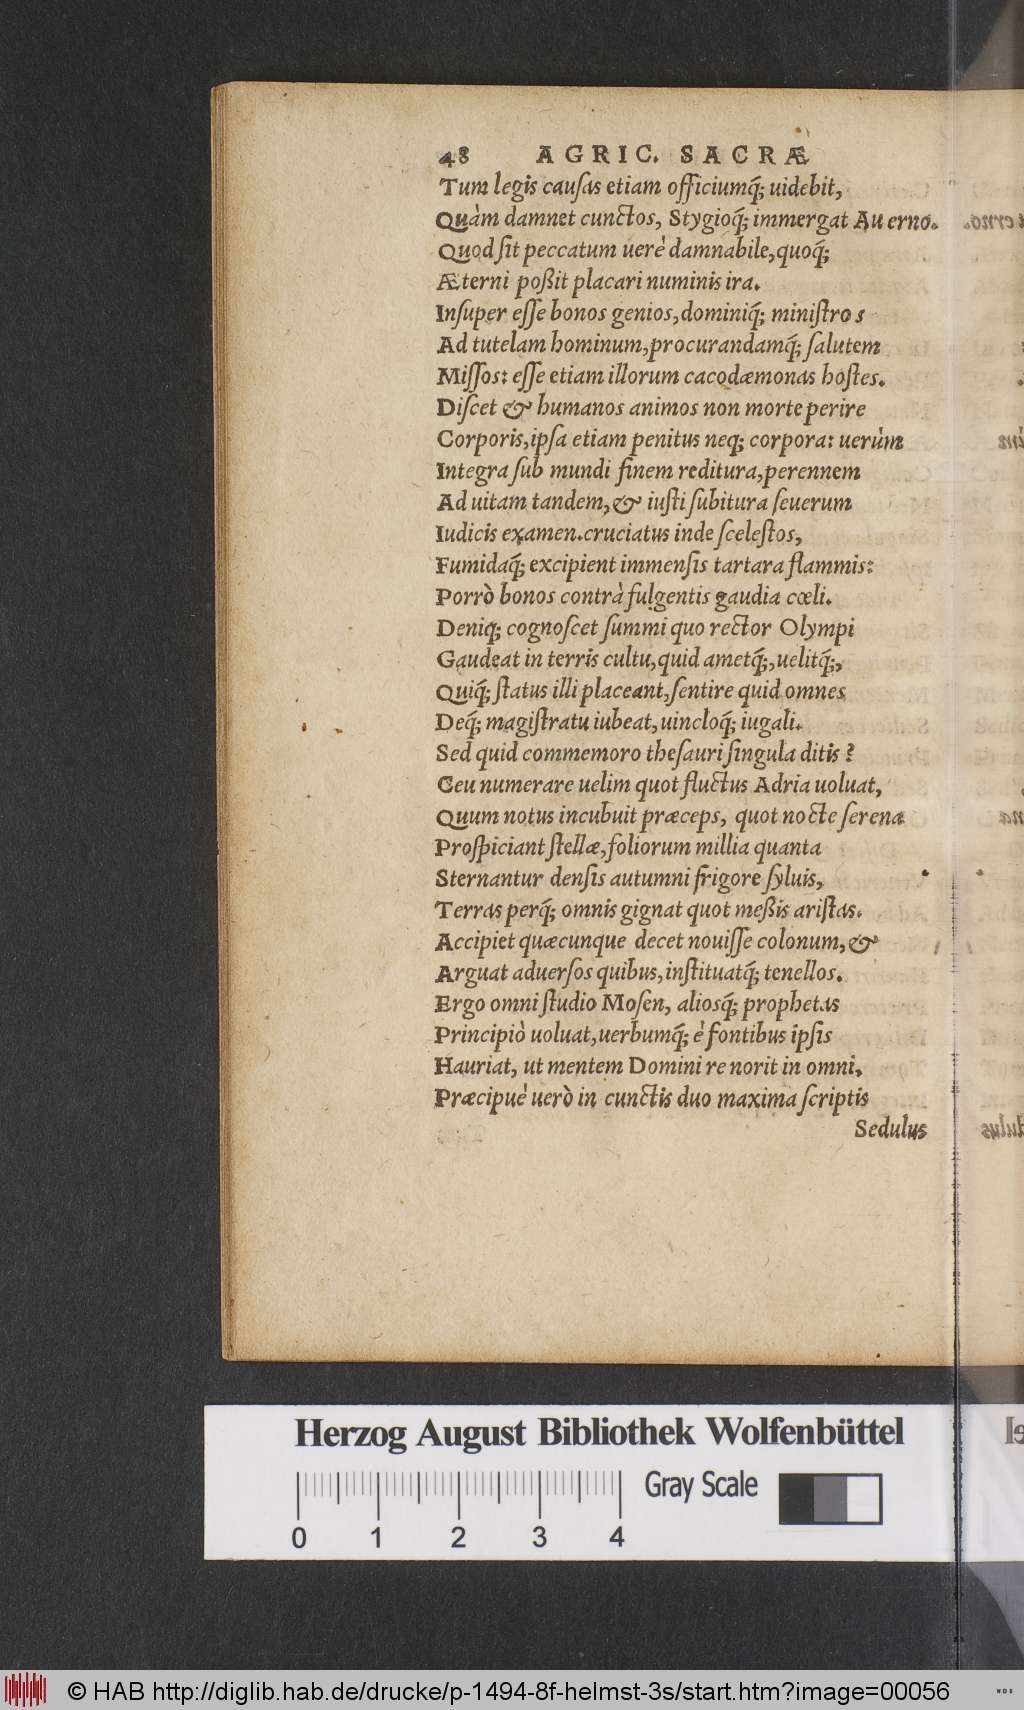 48 AGRIC. SACRÆ
Tum legis cauſas etiam officiumq́; uidebit,
Quàm damnet cunctos, Stygioq́; immergat Au erno.
Quod ſit peccatum uerè damnabile, quoq́;
Æterni poßit placari numinis ira.
Inſuper eſſe bonos genios, dominiq́; miniſtro s
Ad tutelam hominum, procurandamq́; ſalutem
Miſſos: eſſe etiam illorum cacodæmonas hoſtes.
Diſcet & humanos animos non morte perire
Corporis, ipſa etiam penitus neq; corpora: uerùm
Integra ſub mundi finem reditura, perennem
Ad uitam tandem, & iuſti ſubitura ſeuerum
Iudicis examen. cruciatus inde ſceleſtos,
Fumidaq́; excipient immenſis tartara flammis:
Porrò bonos contrà fulgentis gaudia cœli.
Deniq; cognoſcet ſummi quo rector Olympi
Gaudeat in terris cultu, quid ametq́;, uelitq́;,
Quiq́; ſtatus illi placeant, ſentire quid omnes
Deq́; magiſtratu iubeat, uincloq́; iugali.
Sed quid commemoro theſauri ſingula ditis?
Ceu numerare uelim quot fluctus Adria uoluat,
Quum notus incubuit præceps, quot nocte ſerena
Proſpiciant ſtellæ, foliorum millia quanta
Sternantur denſis autumni frigore ſyluis,
Terras perq́; omnis gignat quot meßis ariſtas.
Accipiet quæcunque decet nouiſſe colonum, &
Arguat aduerſos quibus, inſtituatq́; tenellos.
Ergo omni ſtudio Moſen, aliosq́; prophetas
Principiò uoluat, uerbumq́; è fontibus ipſis
Hauriat, ut mentem Domini re norit in omni.
Præcipuè uerò in cunctis duo maxima ſcriptis
Sedulus
Herzog August Bibliothek Wolfenbüttel
Gray Scale
0 1 2 3 4
© HAB http://diglib.hab.de/drucke/p-1494-8f-helmst-3s/start.htm?image=00056